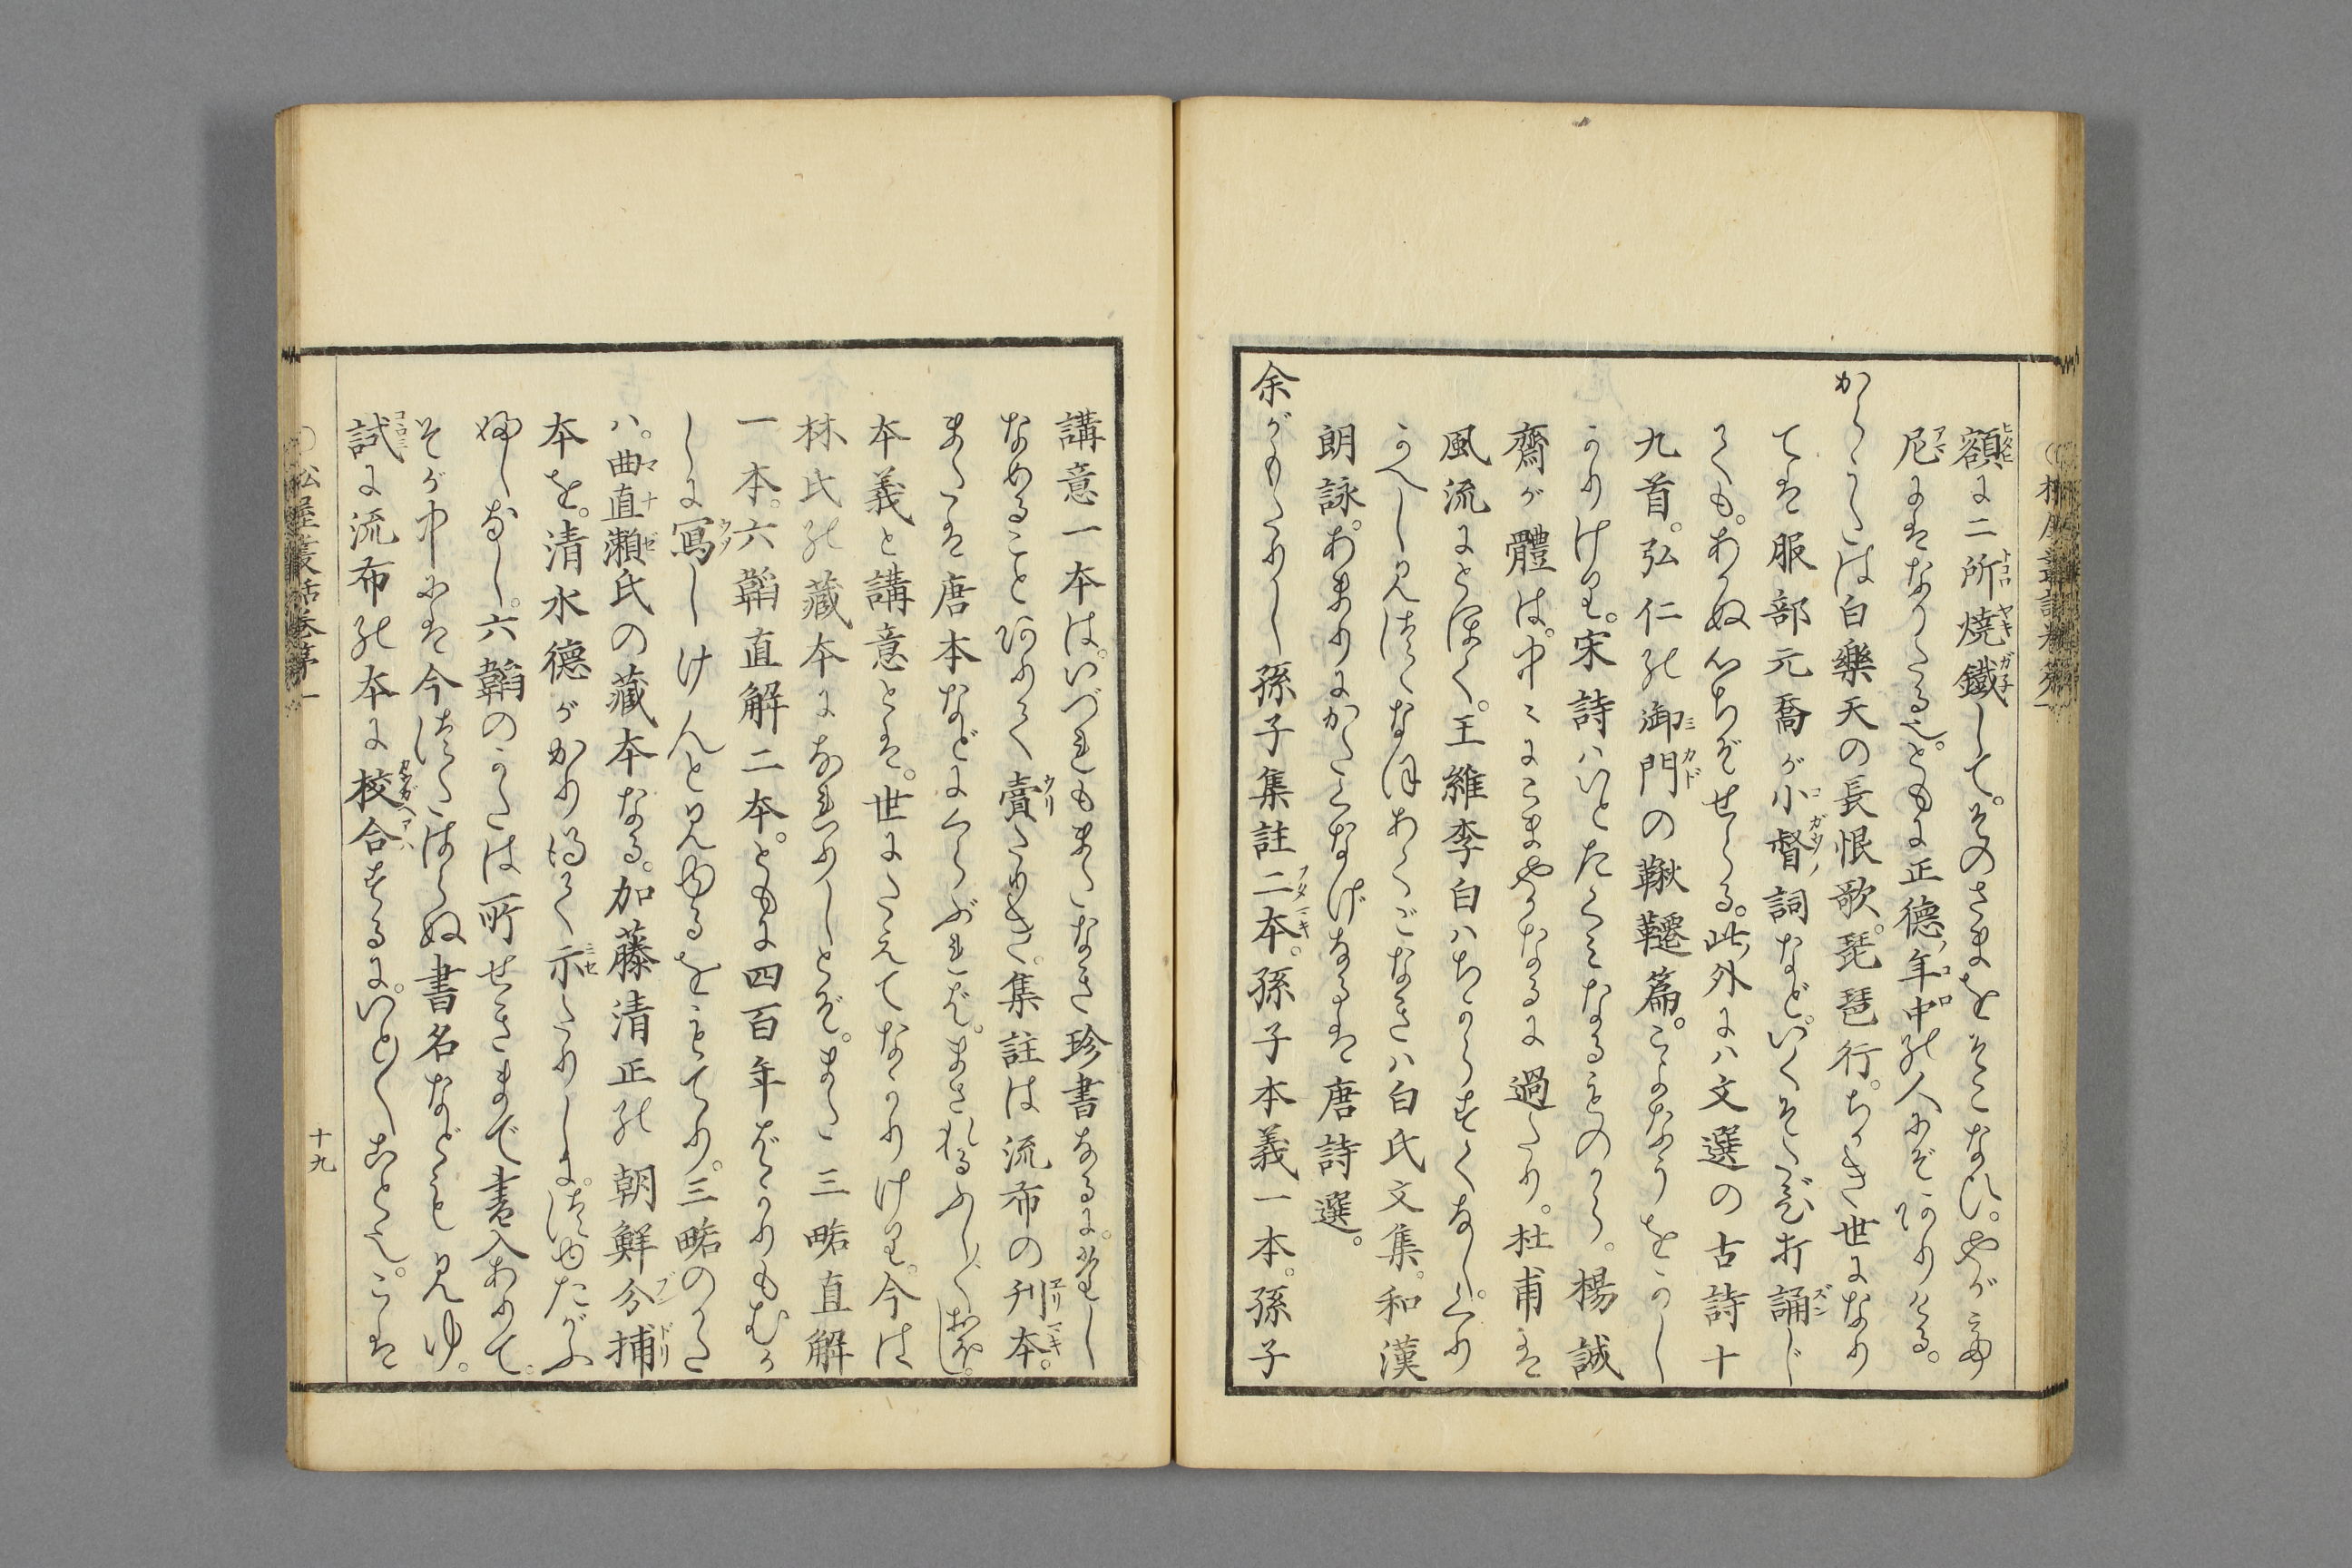 額に二所焼鐵して。そのさまをそこなひ。やがて
尼にはなりたる也。ともに正徳ノ年中の人にぞありける。
からうたは白樂天の長恨歌。琵琶行。ちかき世になり
ては服部元喬が小督詞など。いくそたび打誦じ
ても。あかぬ心ちぞせらる。此ノ外には文選の古詩十
九首。弘仁の御門の鞦韆篇。こよなうをかし
かりけり。宋詩はいとたくみなるものから。楊誠
齋が體は。中々にこまやかなるに過たり。杜甫は
風流にとほく。王維李白はちからすくなし。くり
かへし見はべるになほあくごなきは白氏文集。和漢
朗詠。あまりにかたくなげなるは唐詩選。
余がもたりし孫子集註二本。孫子本義一本。孫子
講意一本は。いづれもまたなき珍書なるに。
なめることありて賣たりき。集註は流布の刊本。
または唐本などにくらぶれば。まされるふし〴〵おほし。
本義と講意とは。世にたえてなかりけり。今は
林氏の藏本になれりしとぞ。また三略直解
一本。六韜直解二本。ともに四百年ばかりもむか
しに寫しけんと見ゆるをもてり。三略のかた
は。曲直瀬氏の藏本なる。加藤清正の朝鮮分捕
本を。清水德がかり得て示たりしに。つゆたがふ
ふしなし。六韜のかたは所せきまで書入ありて。
そが中には今つたはらぬ書名なども見ゆ。
試に流布の本に校合するに。いと〳〵こと也。こは
松屋叢話卷第一
十九